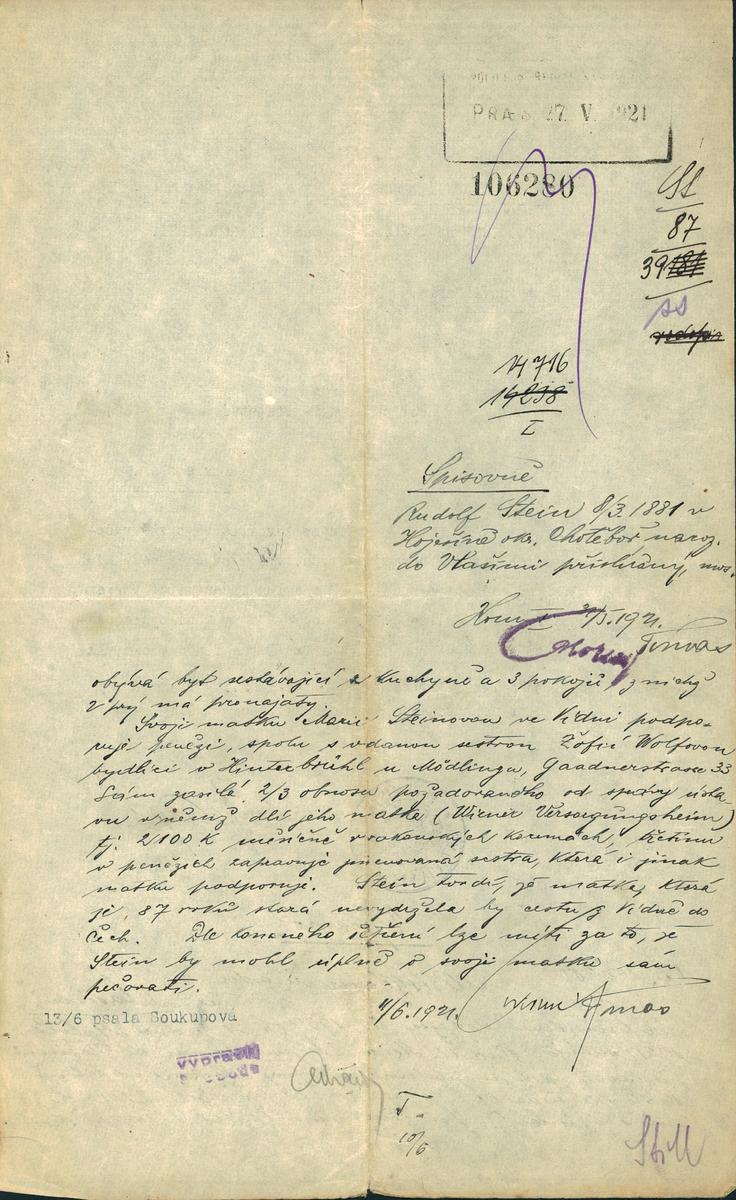 PRA 27. V. 1921
106280
87
39
14716
14238
I
Spisovně
Rudolf Stein 8/3. 1881 v
Hoješíně okr. Chotěboř naroz.
do Vlašimi příslušný,
31/5. 1921.
obývá byt sestávající z kuchyně a 3 pokojů, z nichž
2 prý má pronajaty.
Svoji matku Marii Steinovou ve Vídni podpo-
ruje penězi, spolu s vdanou sestrou Žofií Wolfovou
bydlící v Hinterbrühl u Mödlingu, Gaadnerstrasse 33
Sám zasílá 2/3 obnosu požadovaného od správy ústa-
vu v němž dlí jeho matka (Wiener Versorgungsheim)
tj. 2100 K měsíčně v rakouských korunách, třetinu
v penězích zapravuje jmenovaná sestra, která i jinak
matku podporuje. Stein tvrdí, že matka, která
je 87 roků stará nevydržela by cestu z Vídně do
Čech. Dle konaného šetření lze míti za to, že
Stein by mohl úplně o svoji matku sám
pečovati.
11/6. 1921.
13/6 psala Soukupová
vypravil
10/6